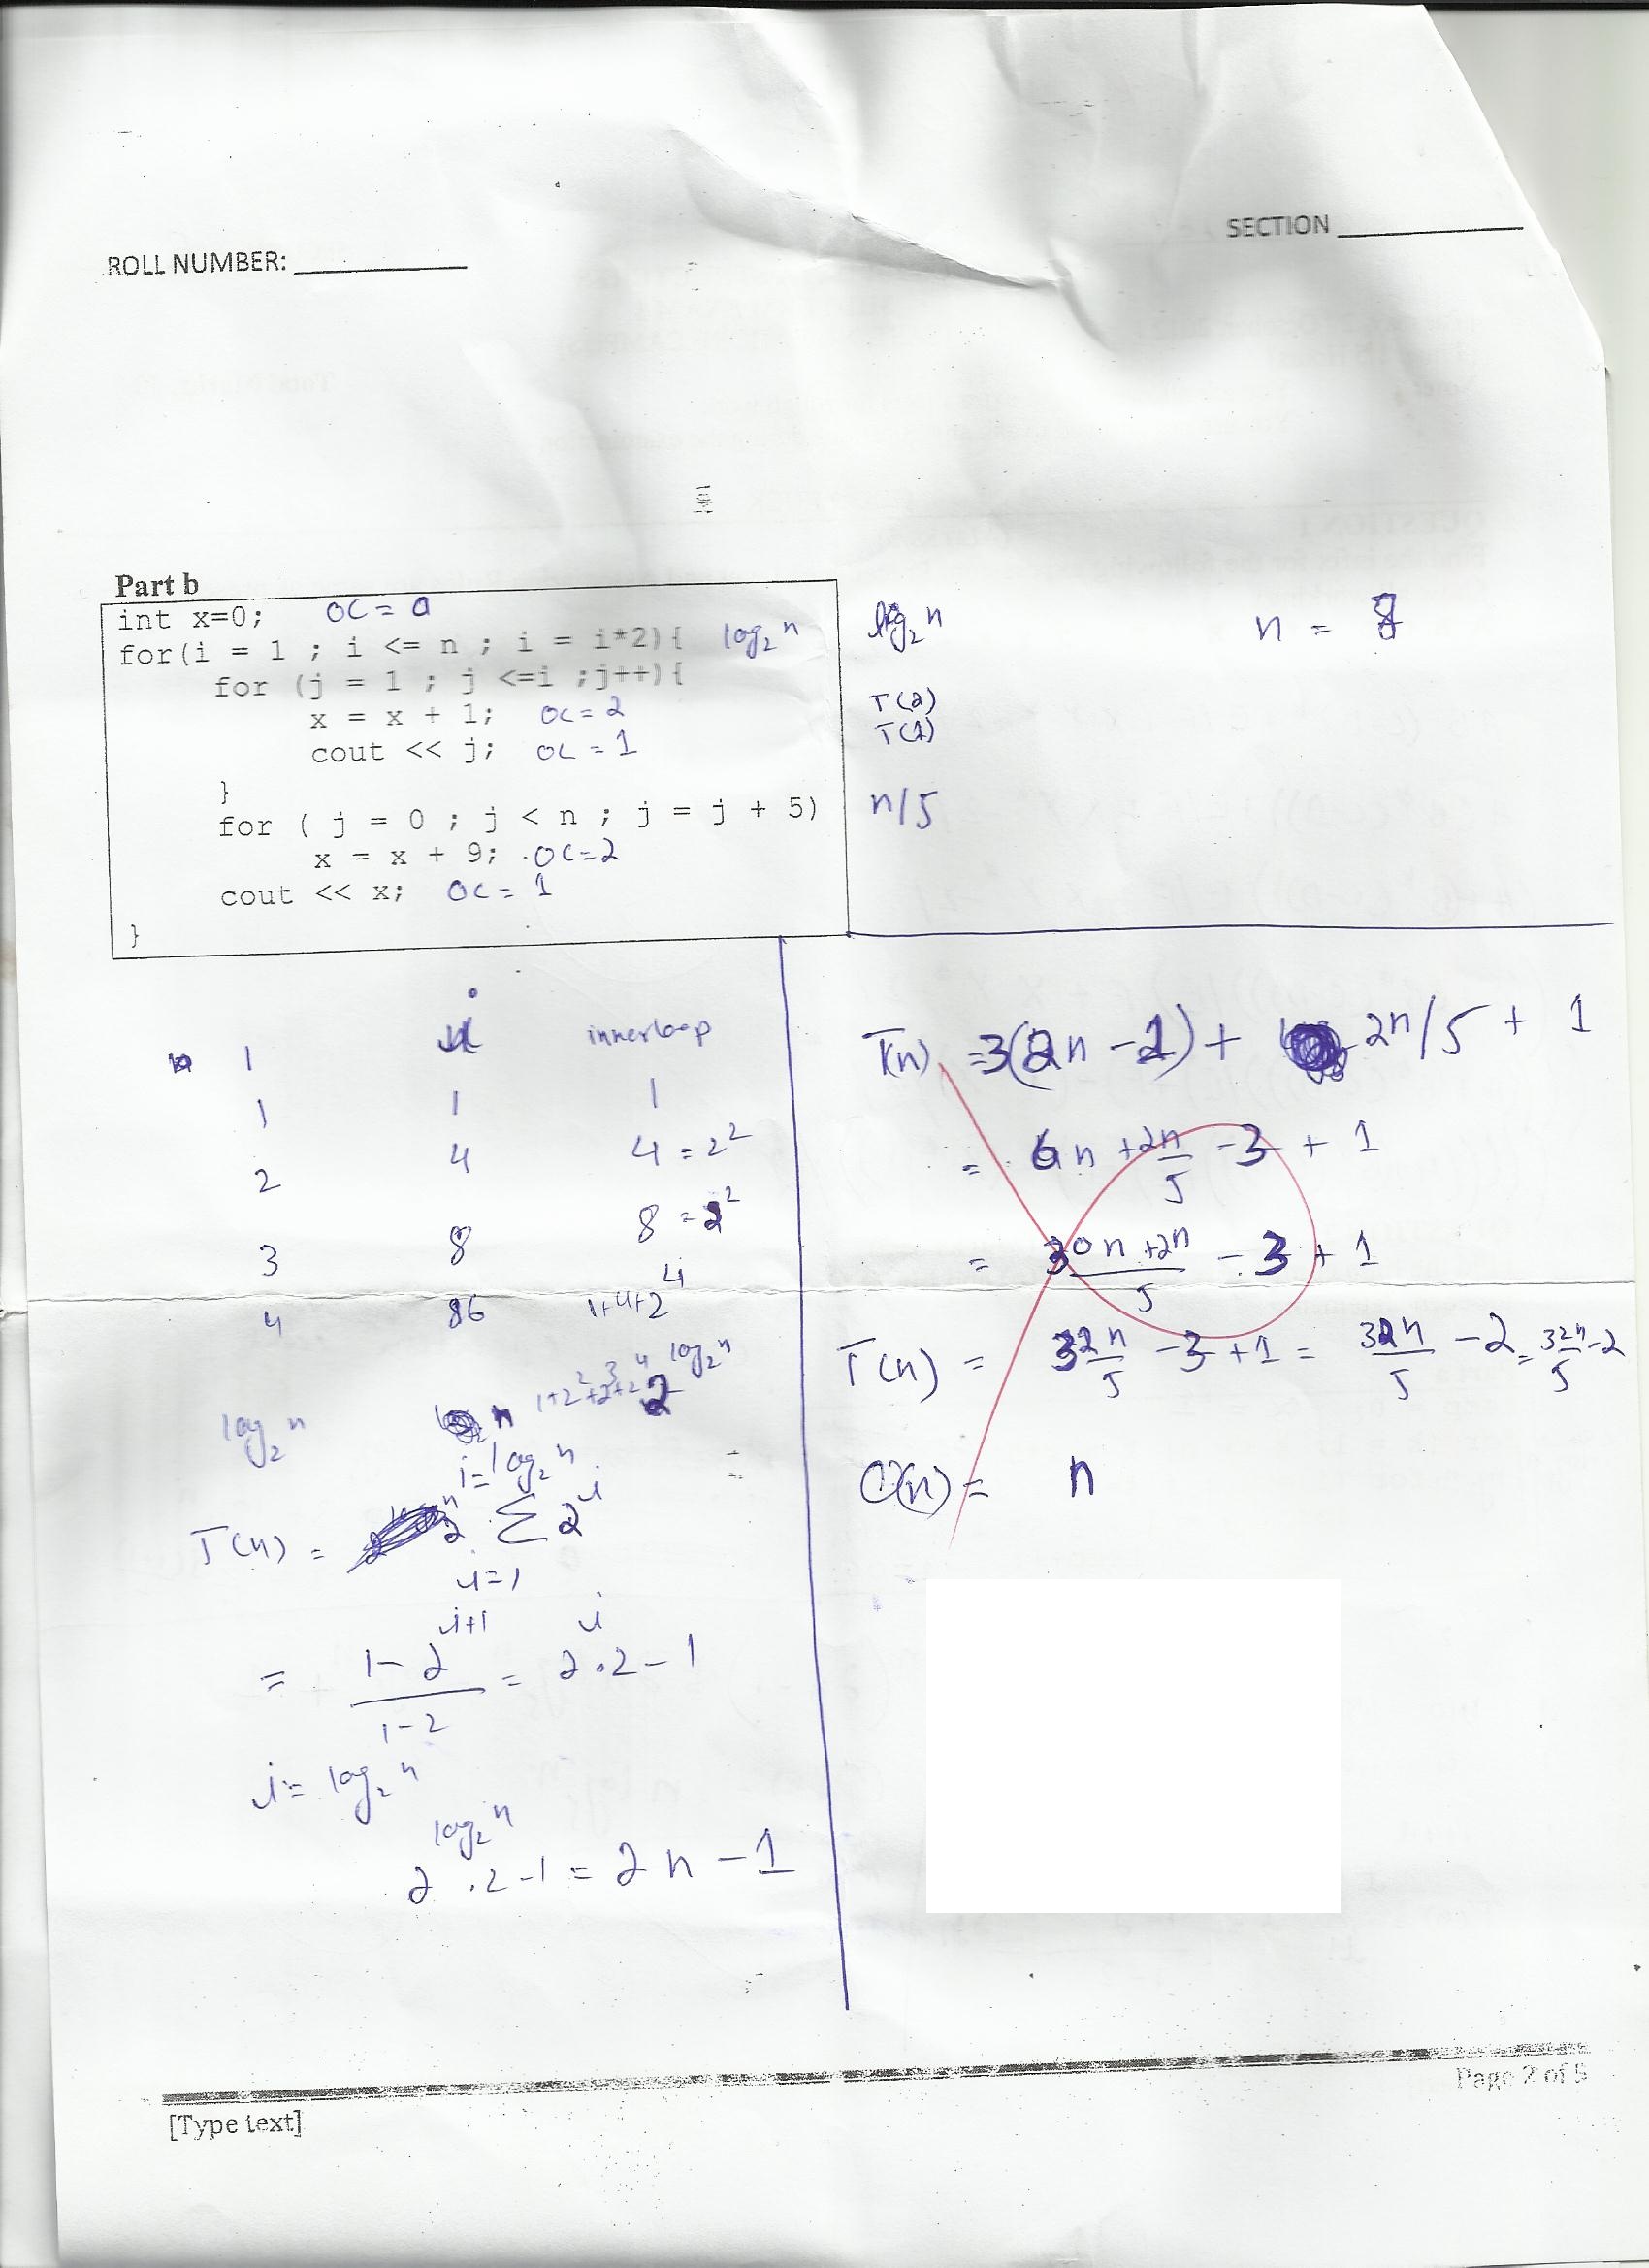 SECTION
ROLL NUMBER:
Part b
int x=0; OC = 0
for(i = 1 ; i <= n ; i = i*2){ log₂ n
for (j = 1 ; j <=i ;j++){
x = x + 1; OC = 2
cout << j; OC = 1
}
for ( j = 0 ; j < n ; j = j + 5)
x = x + 9; OC=2
cout << x; OC = 1
}
log₂ n
n = 8
T(2)
T(1)
n/5
1 i innerloop
1 1 1
2 4 4 = 2²
3 8 8 = 2²
4 86 1+4+2⁴
log₂ n n 1+2²+2³+2⁴ 2^log₂ n
i=log₂ n
T(n) = 2 Σ 2^i
i=1
= (1-2^(i+1))/(1-2) = 2^i·2-1
i= log₂ n
2^(log₂ n) ·2-1 = 2n-1
T(n) =3(2n-1)+ 2n/5 + 1
= 6n + 2n/5 - 3 + 1
= (30n+2n)/5 - 3 + 1
T(n) = 32n/5 - 3 + 1 = 32n/5 - 2 = 32n/5 - 2
O(n) = n
Page 2 of 5
[Type text]